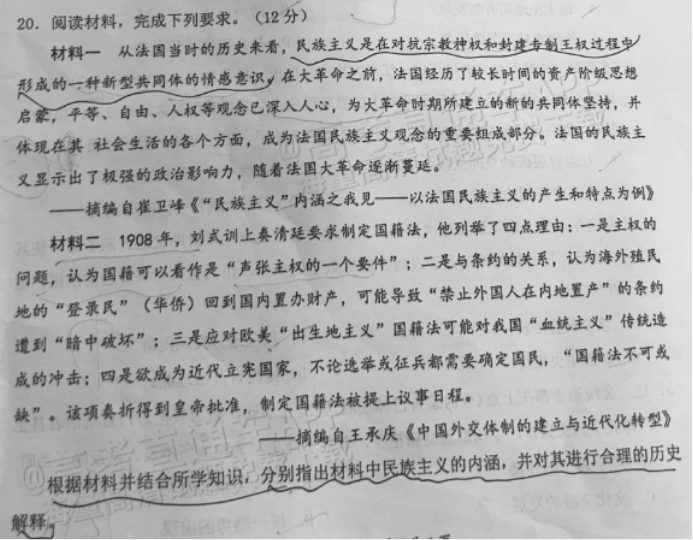 20．阅读材料，完成下列要求。（12分）
材料一 从法国当时的历史来看，民族主义是在对抗宗教神权和封建专制王权过程中
形成的一种新型共同体的情感意识。在大革命之前，法国经历了较长时间的资产阶级思想
启蒙，平等、自由、人权等观念已深入人心，为大革命时期所建立的新的共同体坚持，并
体现在其 社会生活的各个方面，成为法国民族主义观念的重要组成部分。法国的民族主
义显示出了极强的政治影响力，随着法国大革命逐渐蔓延。
——摘编自崔卫峰《“民族主义”内涵之我见——以法国民族主义的产生和特点为例》
材料二 1908年，刘式训上奏清廷要求制定国籍法，他列举了四点理由：一是主权的
问题，认为国籍可以看作是“声张主权的一个要件”；二是与条约的关系，认为海外殖民
地的“登录民”（华侨）回到国内置办财产，可能导致“禁止外国人在内地置产”的条约
遭到“暗中破坏”；三是应对欧美“出生地主义”国籍法可能对我国“血统主义”传统造
成的冲击；四是欲成为近代立宪国家，不论选举或征兵都需要确定国民，“国籍法不可或
缺”。该项奏折得到皇帝批准，制定国籍法被提上议事日程。
——摘编自王承庆《中国外交体制的建立与近代化转型》
根据材料并结合所学知识，分别指出材料中民族主义的内涵，并对其进行合理的历史
解释。